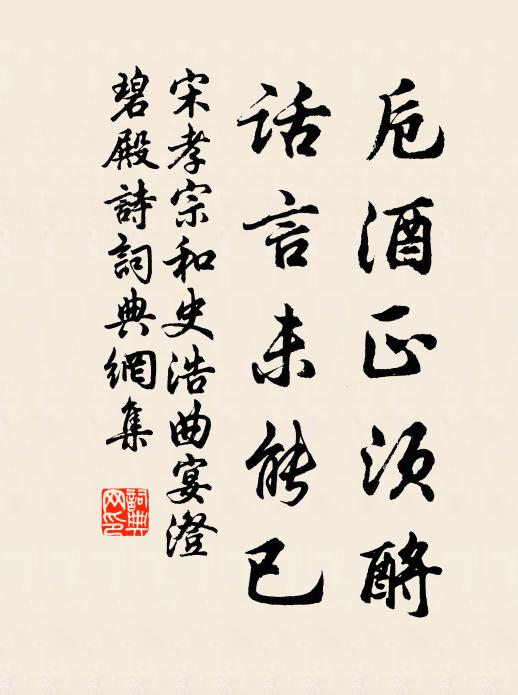 卮酒正须酹
话言未能已
宋孝宗和史浩曲宴澄
碧殿詩詞典網集
詞典
网印